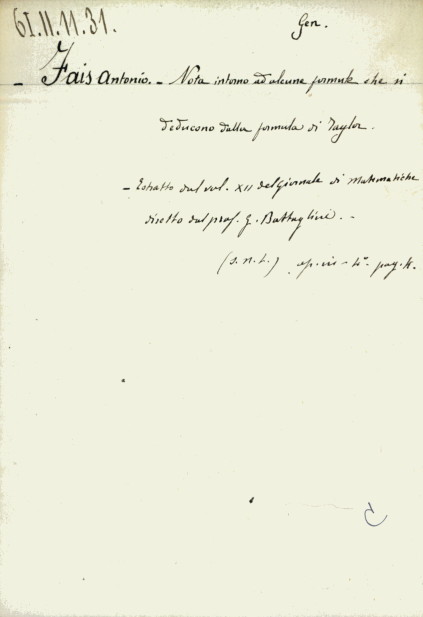 61.11.11.31.
Gen.
- Fais Antonio. - Nota intorno ad alcune formule che si
deducono dalla formula di Taylor.
- Estratto dal vol. XII del Giornale di Matematiche
diretto dal prof. G. Battaglini. -
(s. n. t.) op. in - 4°. pag.